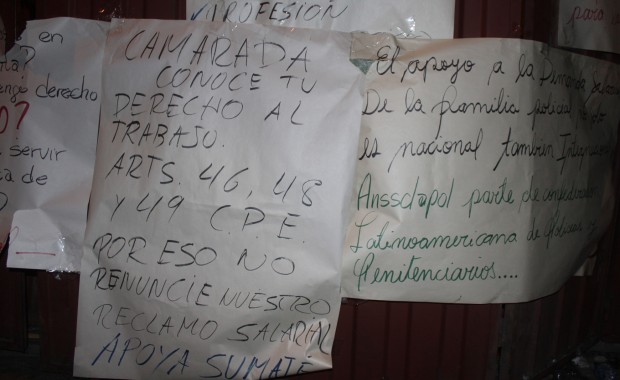 PROFESION
en
derecho
O?
servir
de
CAMARADA
CONOCE TU
DERECHO AL
TRABAJO.
ARTS. 46, 48
Y 49 C.P.E.
POR ESO NO
RENUNCIE NUESTRO
RECLAMO SALARIAL
APOYA SUMATE
El apoyo a la Demanda
De la familia policial
es nacional tambien
Anssclapol parte de
Latinoamericana de Policias y
Penitenciarios....
para